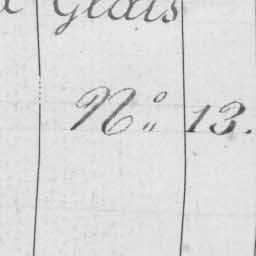 Glais
No. 13.